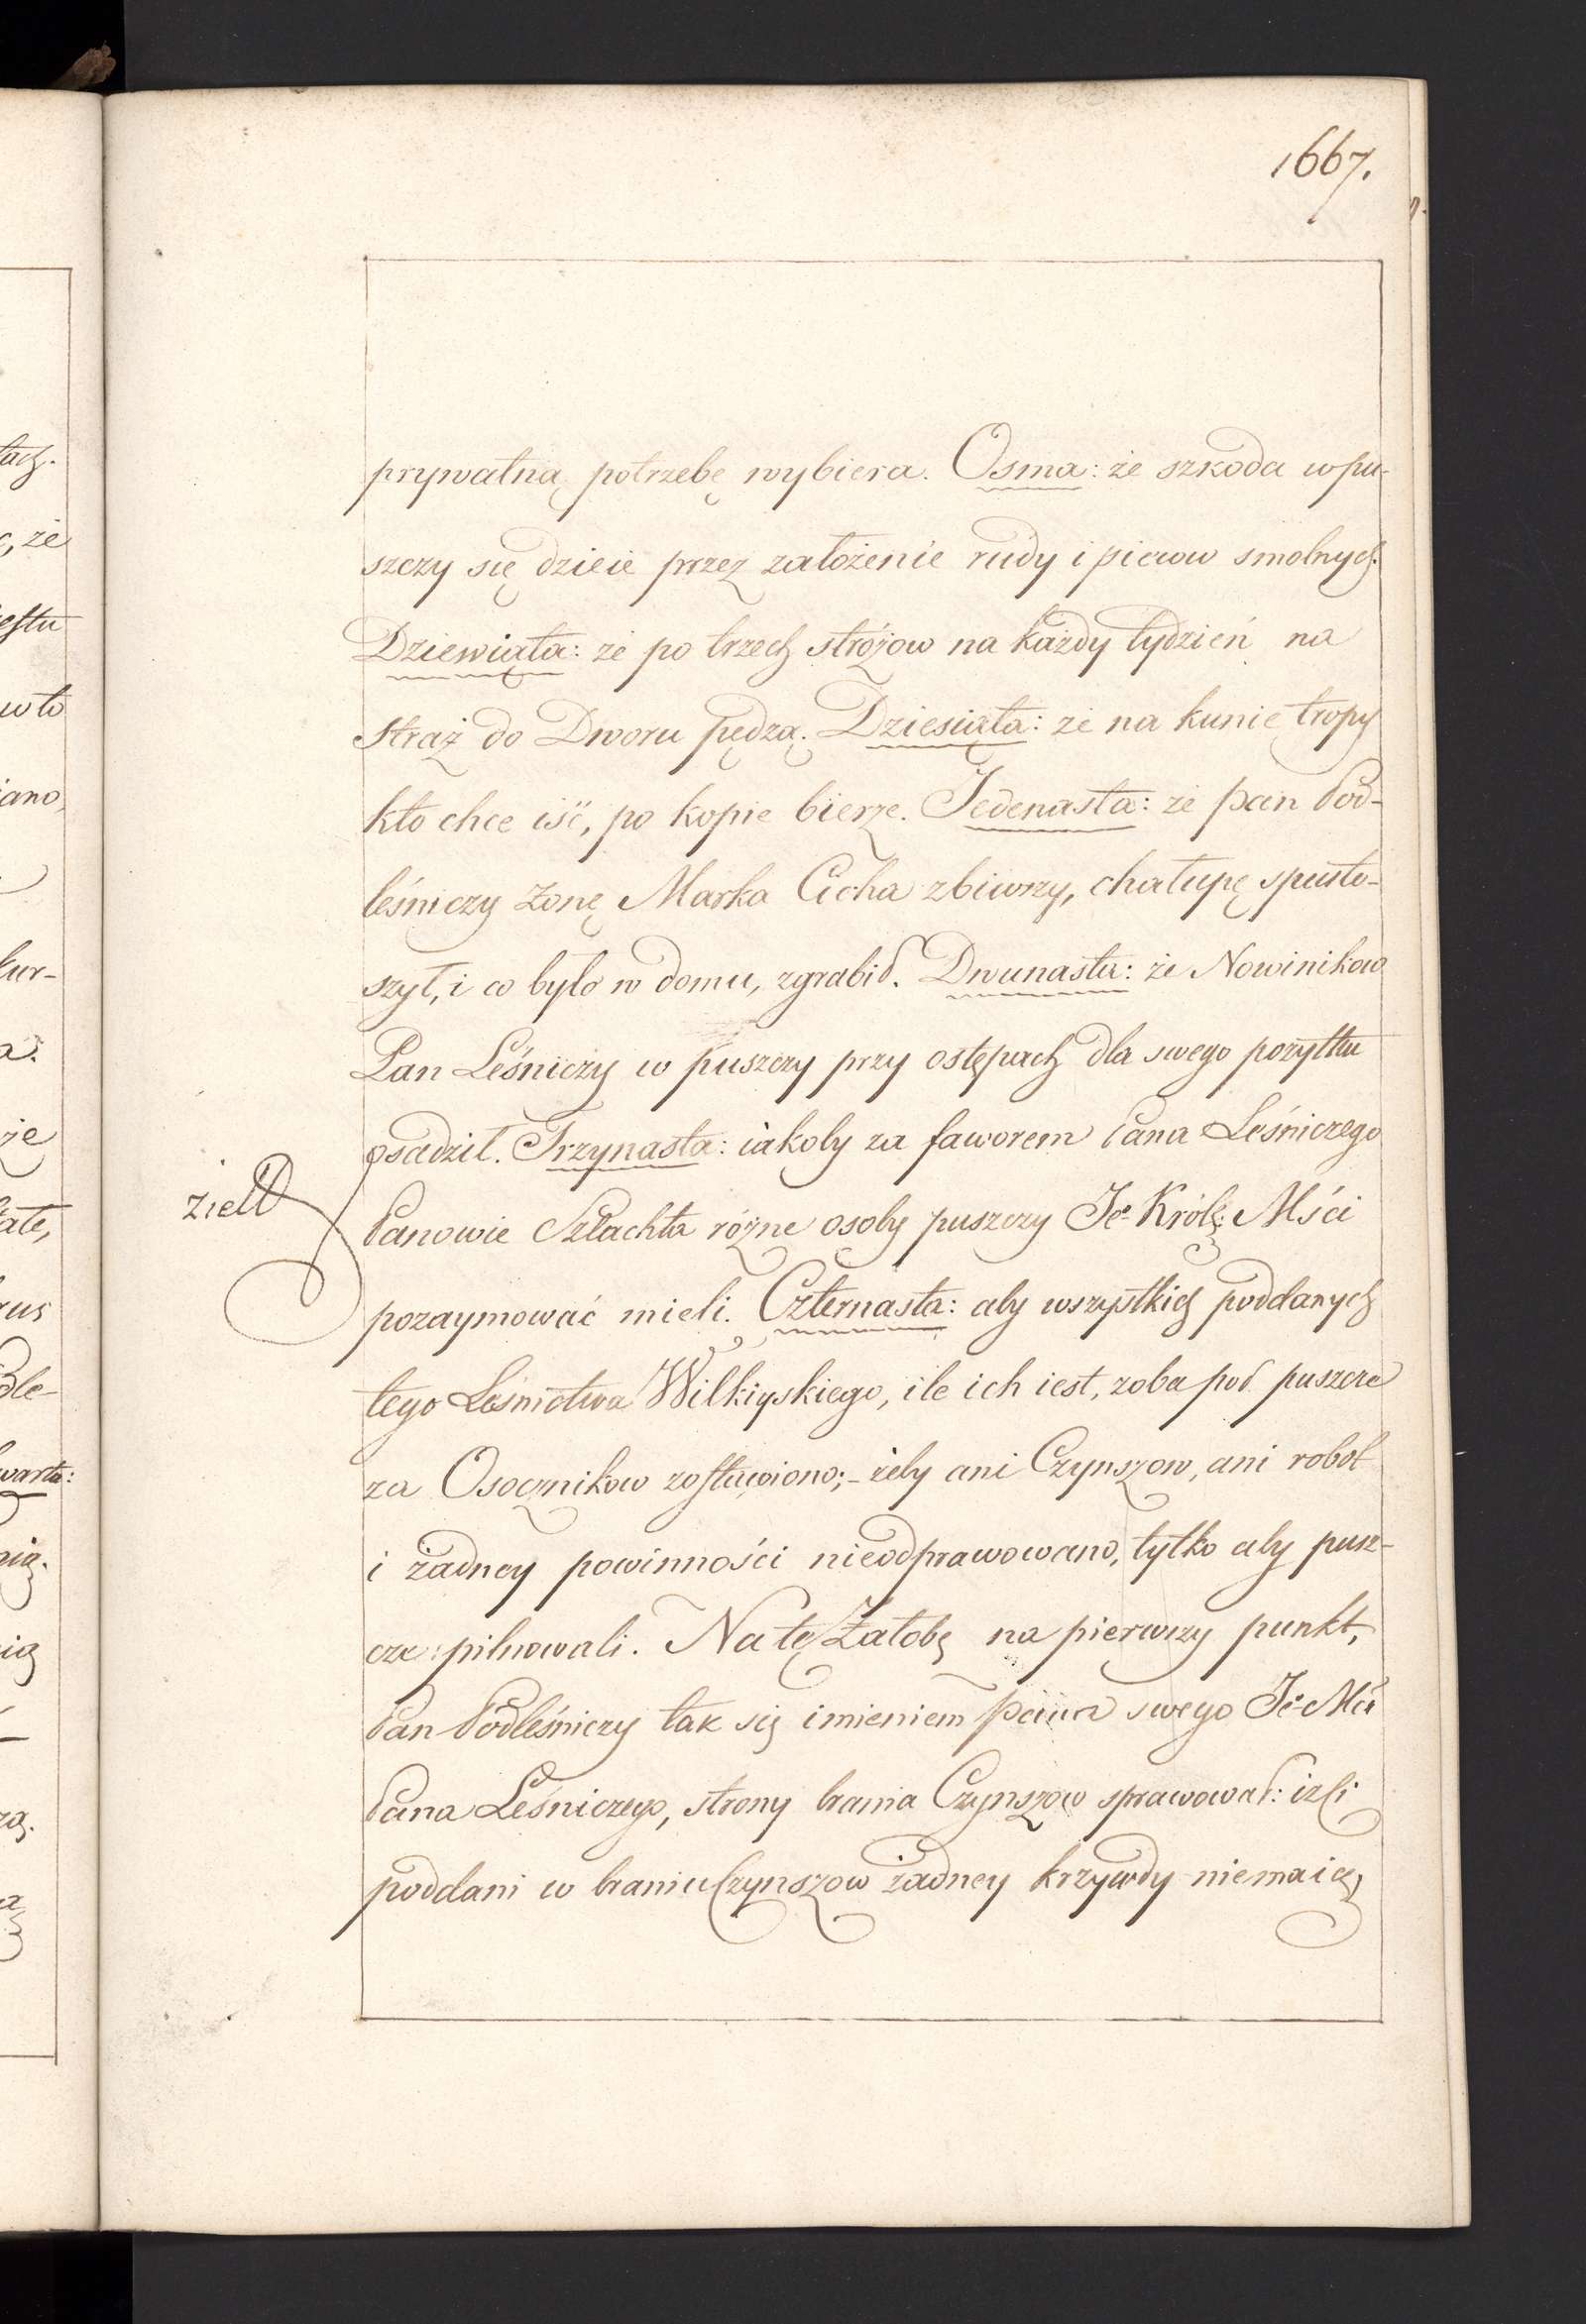 1667.
prywatną potrzebę wybiera. Osma: że szkoda w pu-
szczy się dzieie przez założenie rudy i piecow smolnych.
Dziewiąta: że po trzech stróżow na każdy tydzień na
straż do Dworu pędzą. Dziesiąta: że na kunię tropy
kto chce iść, po kopie bierze. Jedenasta: że pan Pod-
leśniczy żonę Marka Cicha zbiwszy, chałupę spusto-
szył, i co było w domu, zgrabił. Dwunasta: że Nowinikow
Pan Leśniczy w puszczy przy ostępach dla swego pożytku
osadził. Trzynasta: iakoby za faworem Pana Leśniczego
Panowie Szlachta różne osoby puszczy Je° Król: Mści
pozaymować mieli. Czternasta: aby wszystkich poddanych
tego Leśnictwa Wilkiyskiego, ile ich iest, zoba pod puszcze
za Osocznikow zostawiono;- żeby ani Czynszow, ani robot
i żadney powinności nieodprawowano, tylko aby pusz-
cze pilnowali. Na tę Żałobę na pierwszy punkt,
Pan Podleśniczy tak się imieniem pana swego Je° Mści
Pana Leśniczego, strony brania Czynszow sprawował: iż ci
poddani w braniu Czynszow żadney krzywdy niemaią,